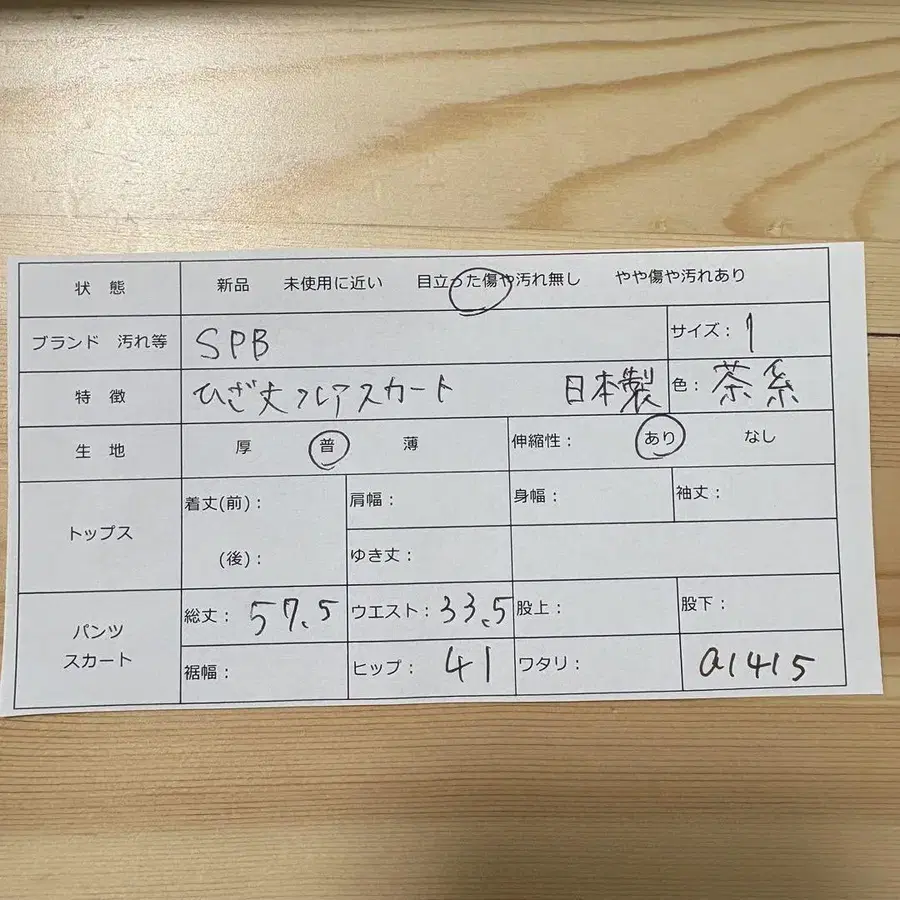 状 態 新品 未使用に近い 目立った傷や汚れ無し やや傷や汚れあり
ブランド 汚れ等 SPB サイズ: 1
特 徴 ひざ丈フレアスカート 日本製 色: 茶系
生 地 厚 普 薄 伸縮性: あり なし
トップス 着丈(前): 肩幅: 身幅: 袖丈:
(後): ゆき丈:
パンツ スカート 総丈: 57.5 ウエスト: 33.5 股上: 股下:
裾幅: ヒップ: 41 ワタリ: a1415